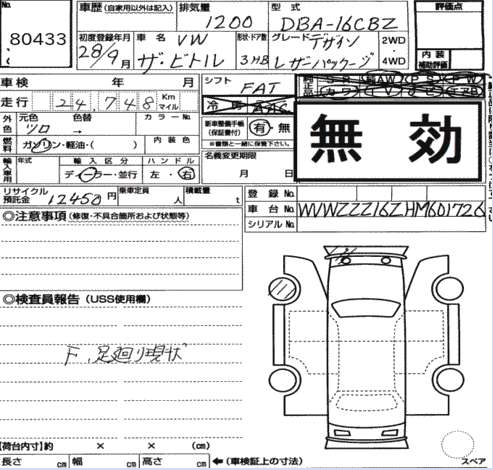 80433
車歴(自家用以外は記入)
排気量
1200
型式
DBA-16CBZ
評価点
初度登録年月
28/9
車名 VW
ザ・ビートル
形状・ドア数
3HB
グレード デザイン
レザーパッケージ
2WD
4WD
内装
補助評価
車検 年 月
シフト
FAT
走行 24,748 Km
マイル
冷房 AAC
外色
元色 色替
シロ →
カラーNo.
新車整備手帳
(保証書付)
有・無
※書類と一緒に保管下さい。
無効
燃料
ガソリン・軽油・( )
内装色
輸入車用
年式
輸入区分
ディーラー・並行
ハンドル
左・右
名義変更期限
月 日
リサイクル
預託金
12450円
乗車定員
人
積載量
t
登録No.
車台No.
WVWZZZ16ZHM601726
シリアルNo.
◎注意事項(修復・不具合箇所および状態等)
◎検査員報告(USS使用欄)
F,足廻り現状
【荷台内寸】約 × × (cm)
長さ cm 幅 cm 高さ cm
←(車検証上の寸法)
スペア